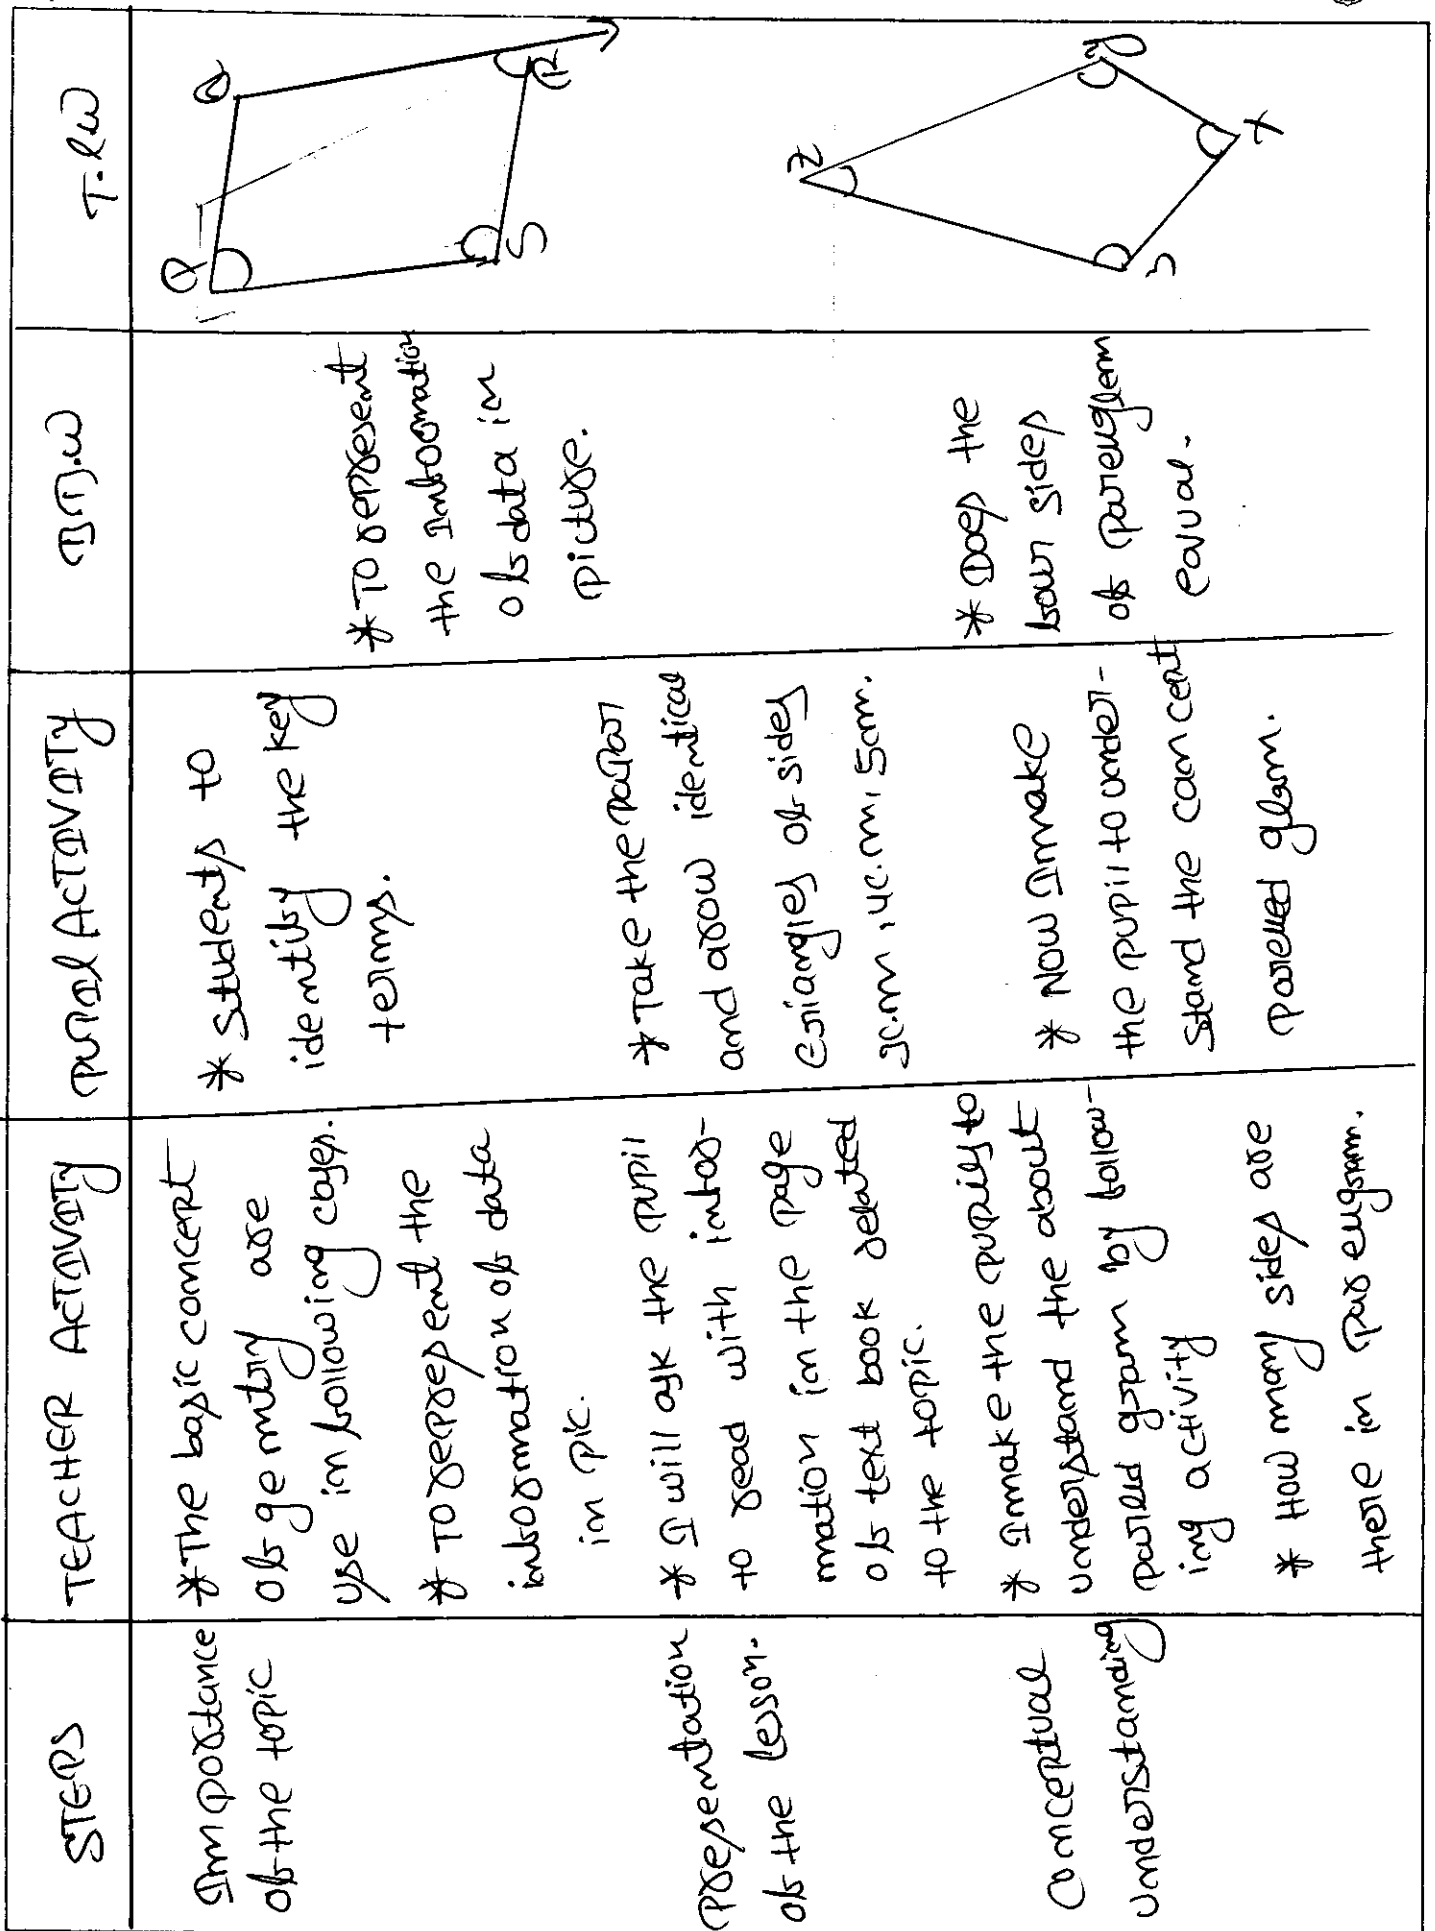 STEPS
TEACHER ACTIVITY
PUPIL ACTIVITY
B.B.W
T.L.W
Importance
of the topic
* The basic concept
of gementry are
use in following cases.
* To represent the
information of data
in pic.
* Students to
identify the key
terms.
* To represent
the Information
of data in
picture.
P
Q
R
S
Presentation
of the lesson.
* I will ask the pupil
to read with infor-
mation in the page
of text book related
to the topic.
* Take the papar
and arow identical
triangles of sides
3c.m, 4c.m, 5cm.
Conceptual
understanding
* I make the pupils to
understand the about
parlled gram by follow-
ing activity
* How many sides are
there in
* Now I make
the pupil to under-
stand the concept
glam.
* Does the
four sides
of
Z
y
x